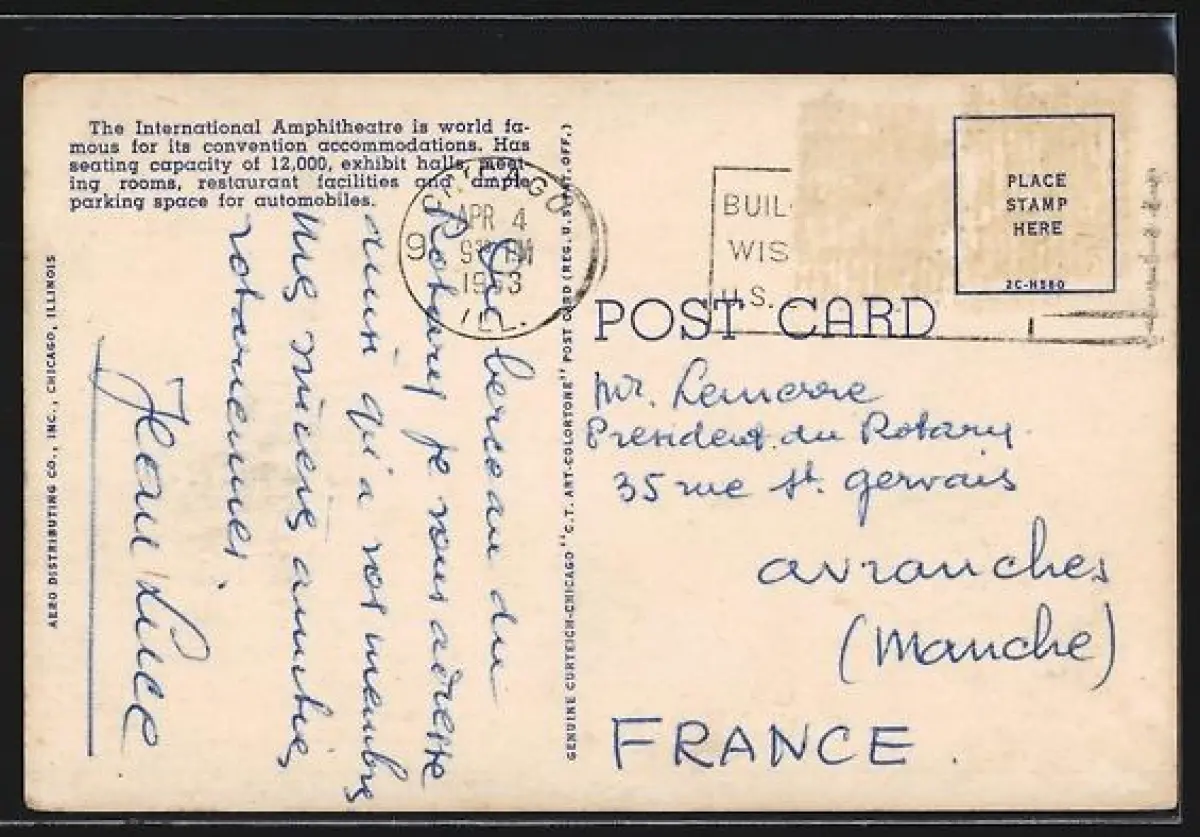 The International Amphitheatre is world fa-
mous for its convention accommodations. Has
seating capacity of 12,000, exhibit halls, meet-
ing rooms, restaurant facilities and ample
parking space for automobiles.
AERO DISTRIBUTING CO., INC., CHICAGO, ILLINOIS
GENUINE CURTEICH-CHICAGO "C.T. ART-COLORTONE" POST CARD (REG. U.S. PAT. OFF.)
CHICAGO
APR 4
9 30 PM
19 3
ILL.
9
BUIL
WIS
U.S.
PLACE
STAMP
HERE
2C-H580
POST CARD
Du berceau du
Rotary je vous adresse
ainsi qu'a vos membres
mes sincères amitiés
rotariennes.
Jean Luce
Mr. Lemerre
President du Rotary
35 rue St. Gervais
avranches
(Manche)
FRANCE.